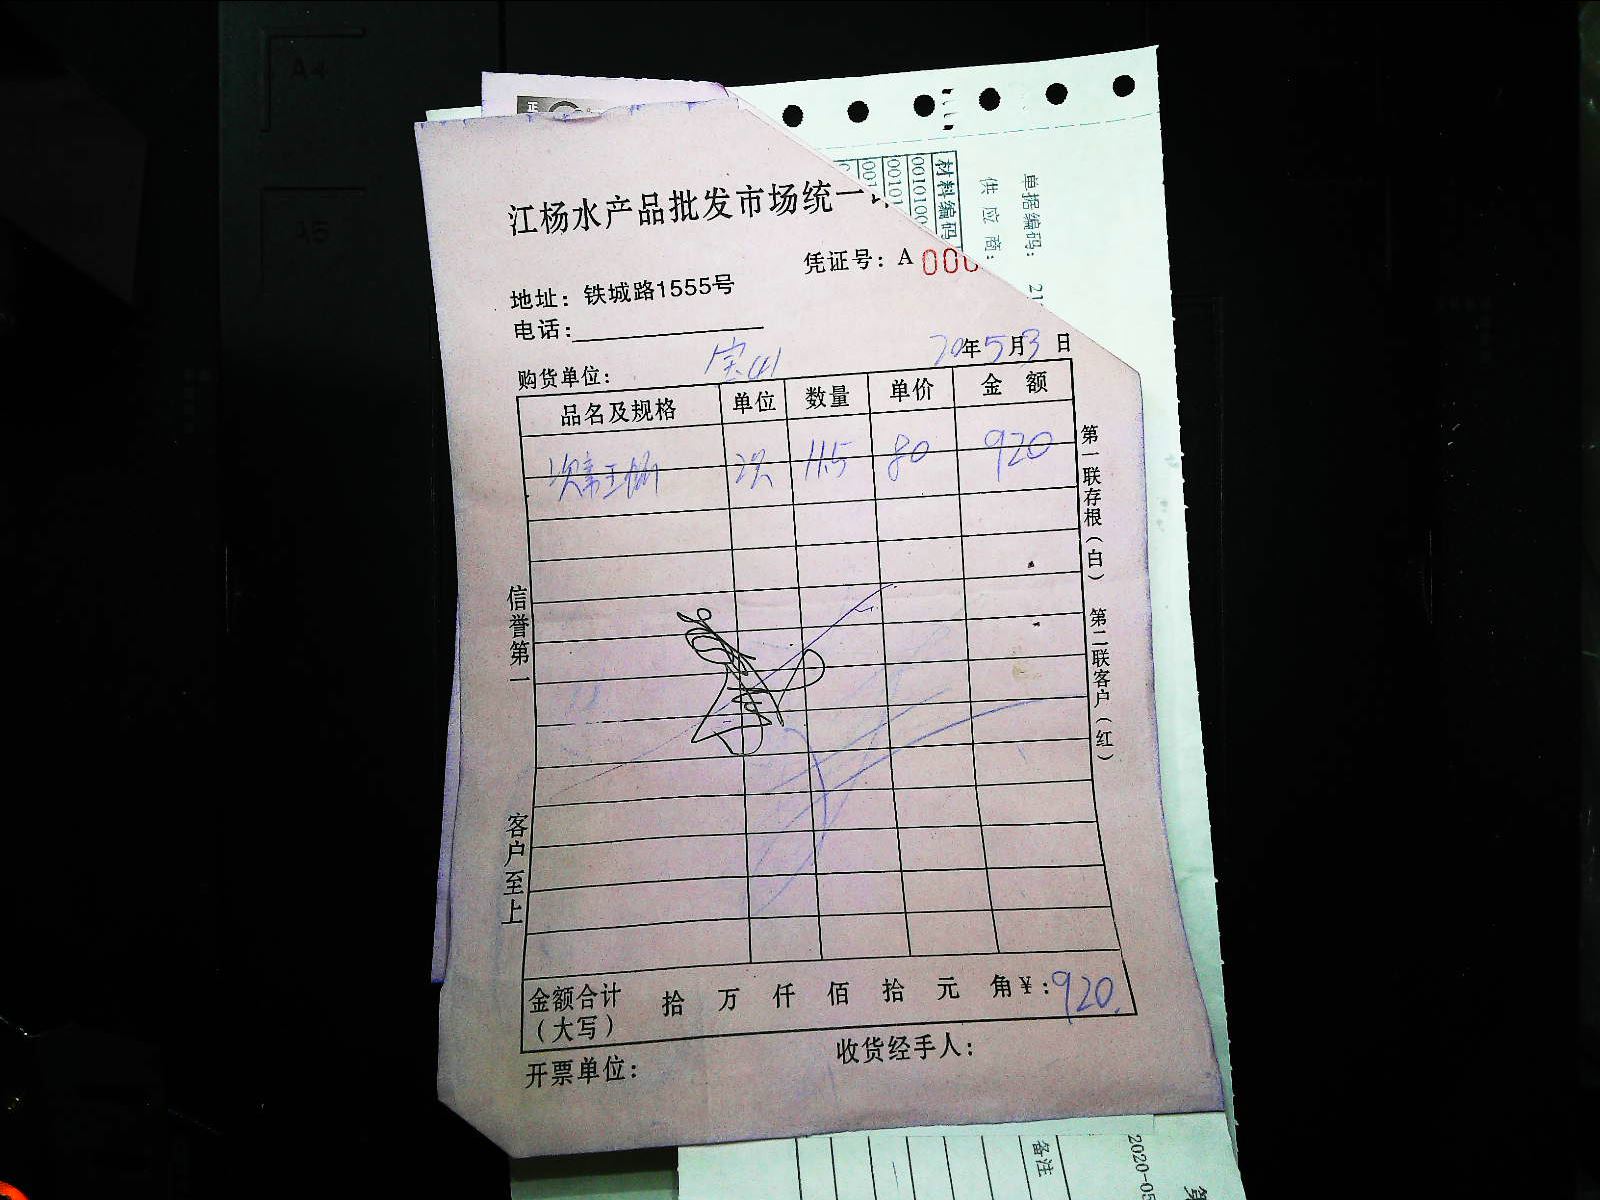 A4
A5
正
江杨水产品批发市场统一
凭证号：A 000
地址：铁城路1555号
电话：
购货单位：宝山
20年5月3日
品名及规格 单位 数量 单价 金额
11.5 80 920
第一联存根（白） 第二联客户（红）
信誉第一 客户至上
金额合计（大写） 拾 万 仟 佰 拾 元 角 ¥：920.
开票单位：
收货经手人：
单据编码： 21
供应商：
材料编码
001010
00101
001
备注
2020-05
第